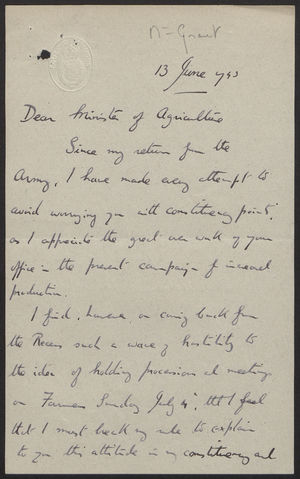 Mr Grant
13 June 1943
Dear Minister of Agriculture
Since my return from the
Army, I have made every attempt to
avoid worrying you with constituency points,
as I appreciate the great over work of your
office in the present campaign of increased
production.
I find, however, on coming back from
the Recess such a wave of hostility to
the idea of holding processions and meetings
on Farmers Sunday July 4, that I feel
that I must break my rule to explain
to you this attitude in my constituency and